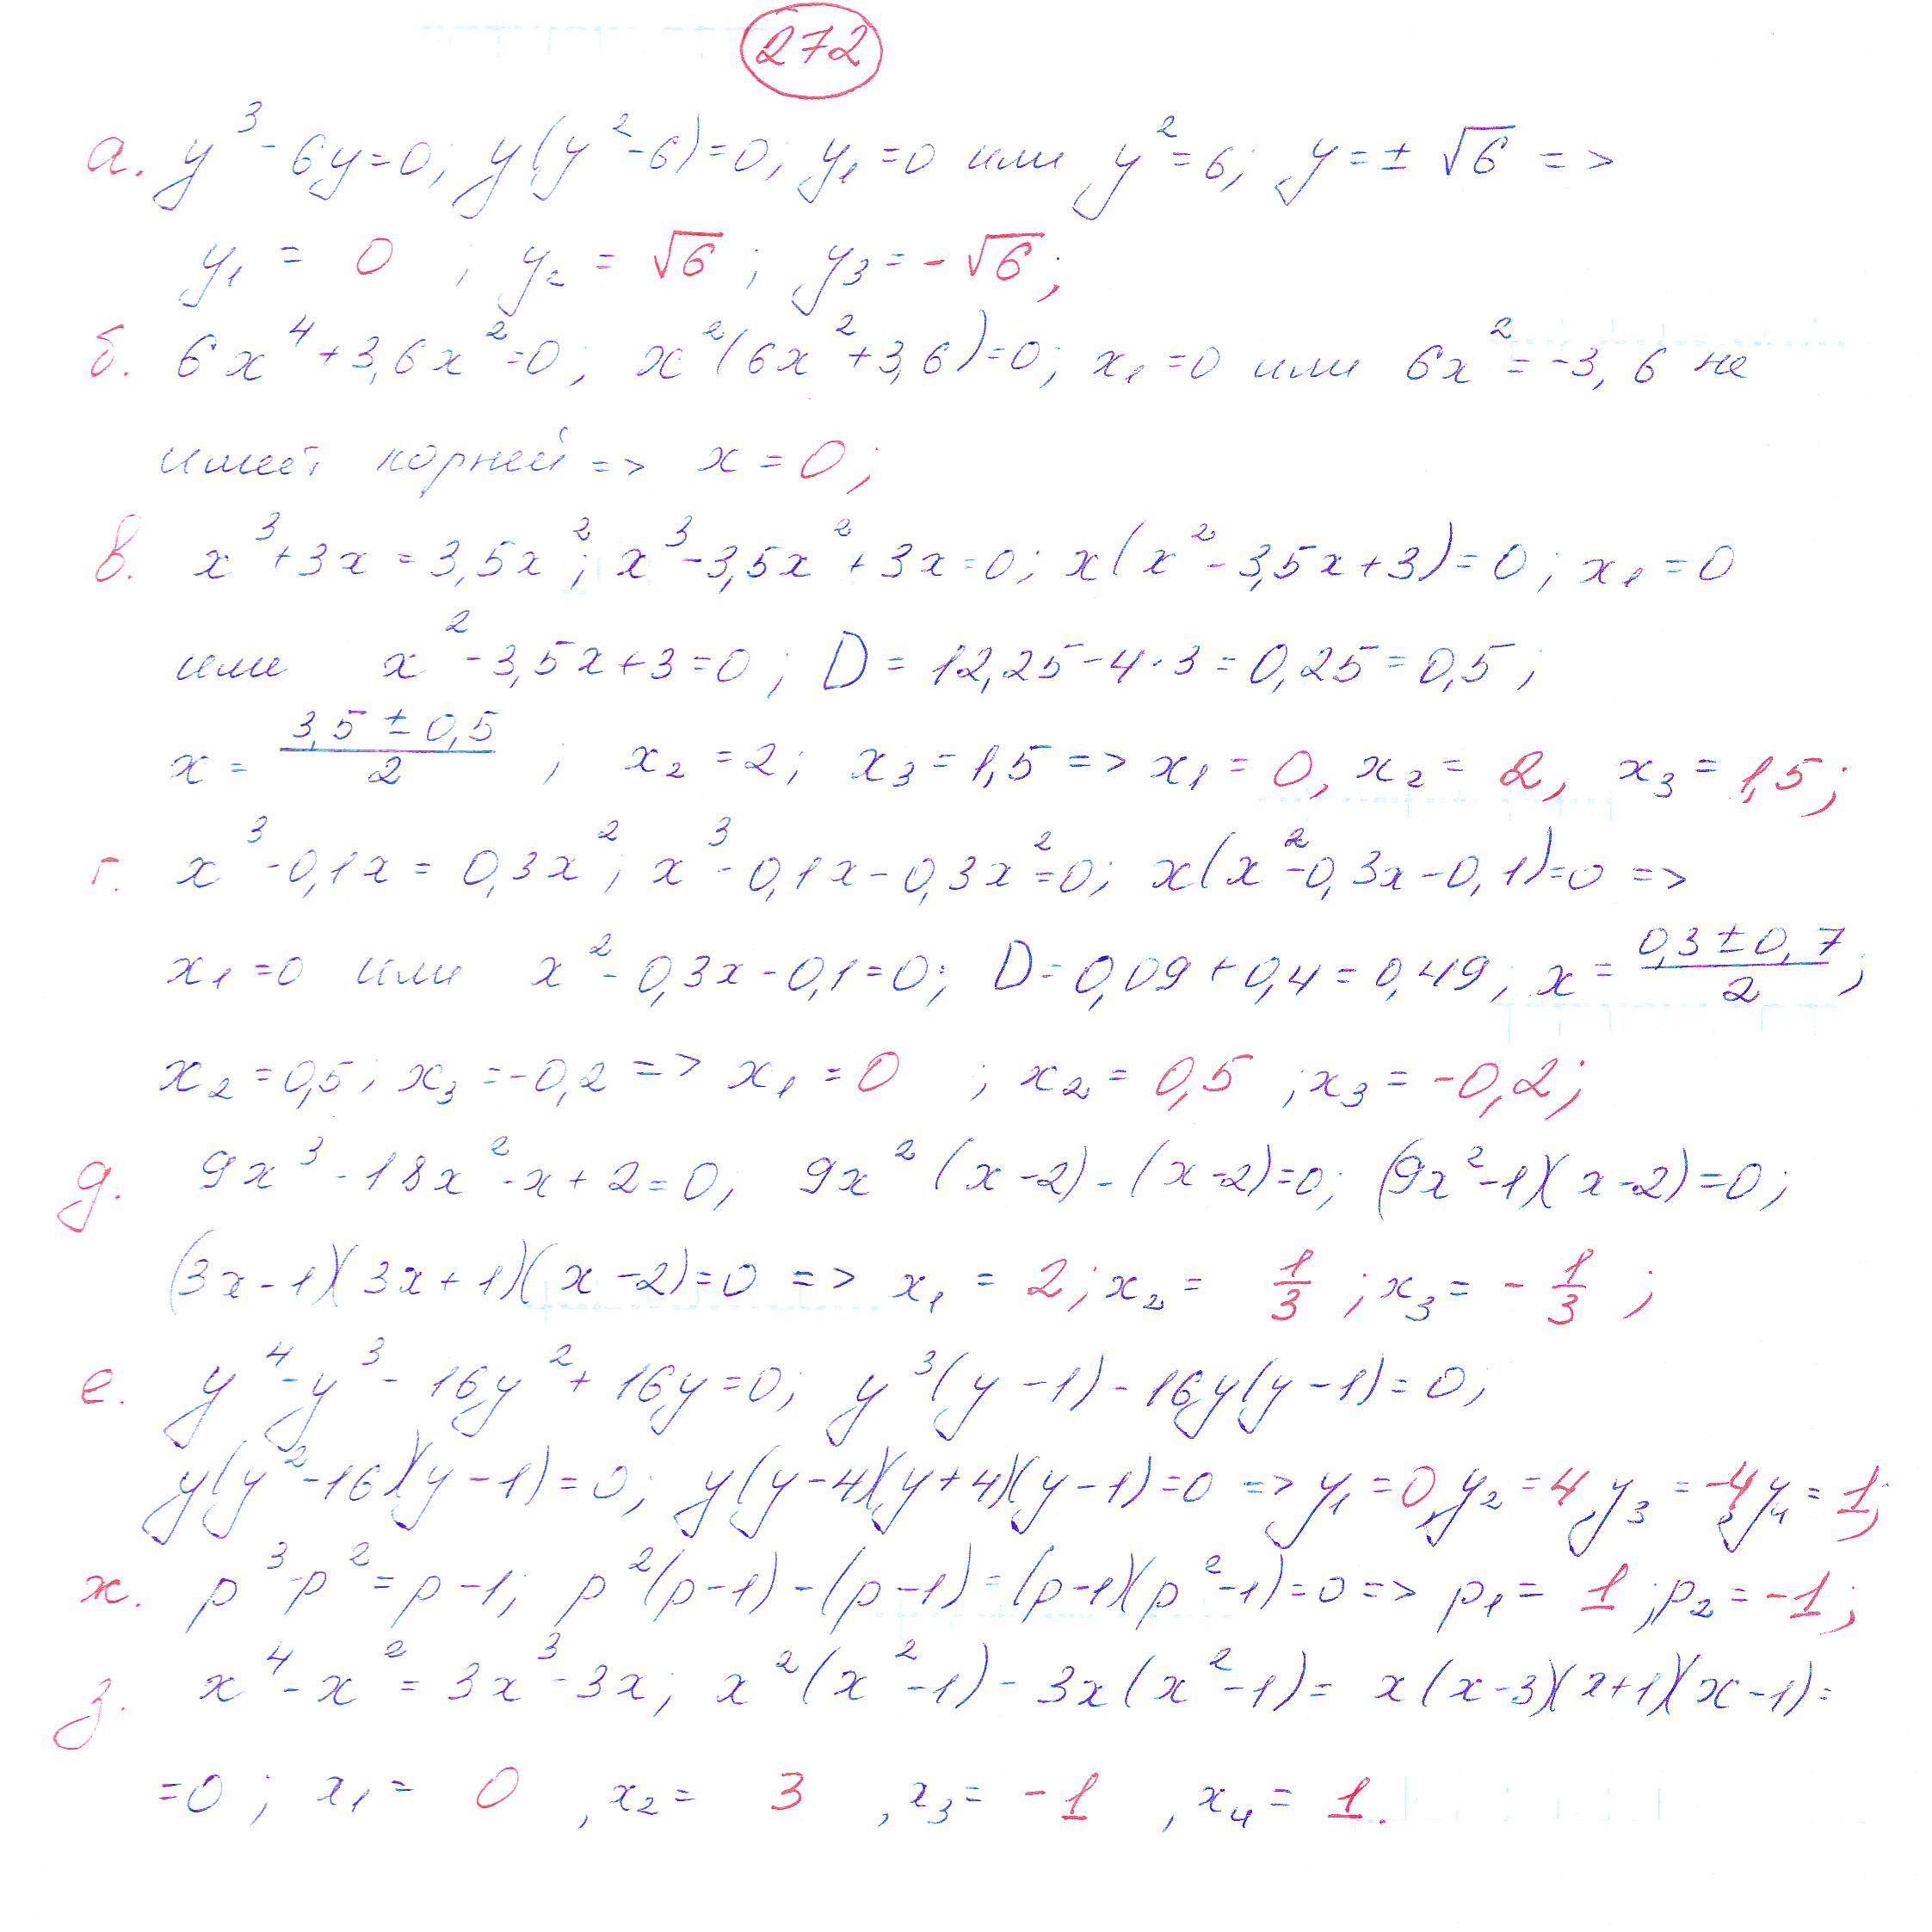 272
а. y³ - 6y = 0; y(y² - 6) = 0; y₁ = 0 или y² = 6; y = ± √6 =>
y₁ = 0 ; y₂ = √6 ; y₃ = - √6;
б. 6x⁴ + 3,6x² = 0; x²(6x² + 3,6) = 0; x₁ = 0 или 6x² = -3,6 не
имеет корней => x = 0;
в. x³ + 3x = 3,5x²; x³ - 3,5x² + 3x = 0; x(x² - 3,5x + 3) = 0; x₁ = 0
или x² - 3,5x + 3 = 0; D = 12,25 - 4·3 = 0,25 = 0,5;
x = (3,5 ± 0,5)/2 ; x₂ = 2; x₃ = 1,5 => x₁ = 0, x₂ = 2, x₃ = 1,5;
г. x³ - 0,1x = 0,3x²; x³ - 0,1x - 0,3x² = 0; x(x² - 0,3x - 0,1) = 0 =>
x₁ = 0 или x² - 0,3x - 0,1 = 0; D = 0,09 + 0,4 = 0,49; x = (0,3 ± 0,7)/2;
x₂ = 0,5; x₃ = -0,2 => x₁ = 0 ; x₂ = 0,5 ; x₃ = -0,2;
д. 9x³ - 18x² - x + 2 = 0; 9x²(x - 2) - (x - 2) = 0; (9x² - 1)(x - 2) = 0;
(3x - 1)(3x + 1)(x - 2) = 0 => x₁ = 2; x₂ = 1/3 ; x₃ = - 1/3 ;
е. y⁴ - y³ - 16y² + 16y = 0; y³(y - 1) - 16y(y - 1) = 0;
y(y² - 16)(y - 1) = 0; y(y - 4)(y + 4)(y - 1) = 0 => y₁ = 0, y₂ = 4, y₃ = -4, y₄ = 1;
ж. p³ - p² = p - 1; p²(p - 1) - (p - 1) = (p - 1)(p² - 1) = 0 => p₁ = 1 ; p₂ = -1;
з. x⁴ - x² = 3x³ - 3x; x²(x² - 1) - 3x(x² - 1) = x(x - 3)(x + 1)(x - 1) =
= 0 ; x₁ = 0 , x₂ = 3 , x₃ = -1 , x₄ = 1.